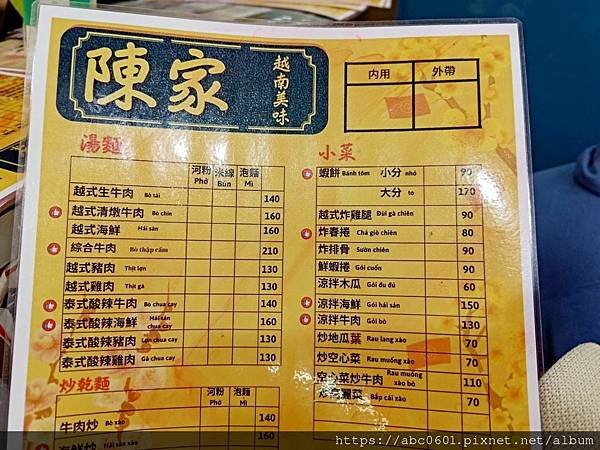 陳家
越南美味
內用 外帶
湯麵
河粉 米線 泡麵
Phở Bún Mì
越式生牛肉 Bò tái 140
越式清燉牛肉 Bò chín 160
越式海鮮 Hải sản 160
綜合牛肉 Bò thập cẩm 210
越式豬肉 Thịt lợn 130
越式雞肉 Thịt gà 130
泰式酸辣牛肉 Bò chua cay 140
泰式酸辣海鮮 Hải sản chua cay 160
泰式酸辣豬肉 Lợn chua cay 130
泰式酸辣雞肉 Gà chua cay 130
炒乾麵
河粉 泡麵
Phở Mì
牛肉炒 Bò xào 140
海鮮炒 Hải sản xào 160
小菜
蝦餅 Bánh tôm 小分 nhỏ 90
大分 to 170
越式炸雞腿 Đùi gà chiên 90
炸春捲 Chả giò chiên 80
炸排骨 Sườn chiên 90
鮮蝦捲 Gỏi cuốn 90
涼拌木瓜 Gỏi đu đủ 60
涼拌海鮮 Gỏi hải sản 150
涼拌牛肉 Gỏi bò 130
炒地瓜葉 Rau lang xào 70
炒空心菜 Rau muống xào 70
空心菜炒牛肉 Rau muống xào bò 110
麗菜 Bắp cải xào 70
https://abc0601.pixnet.net/album